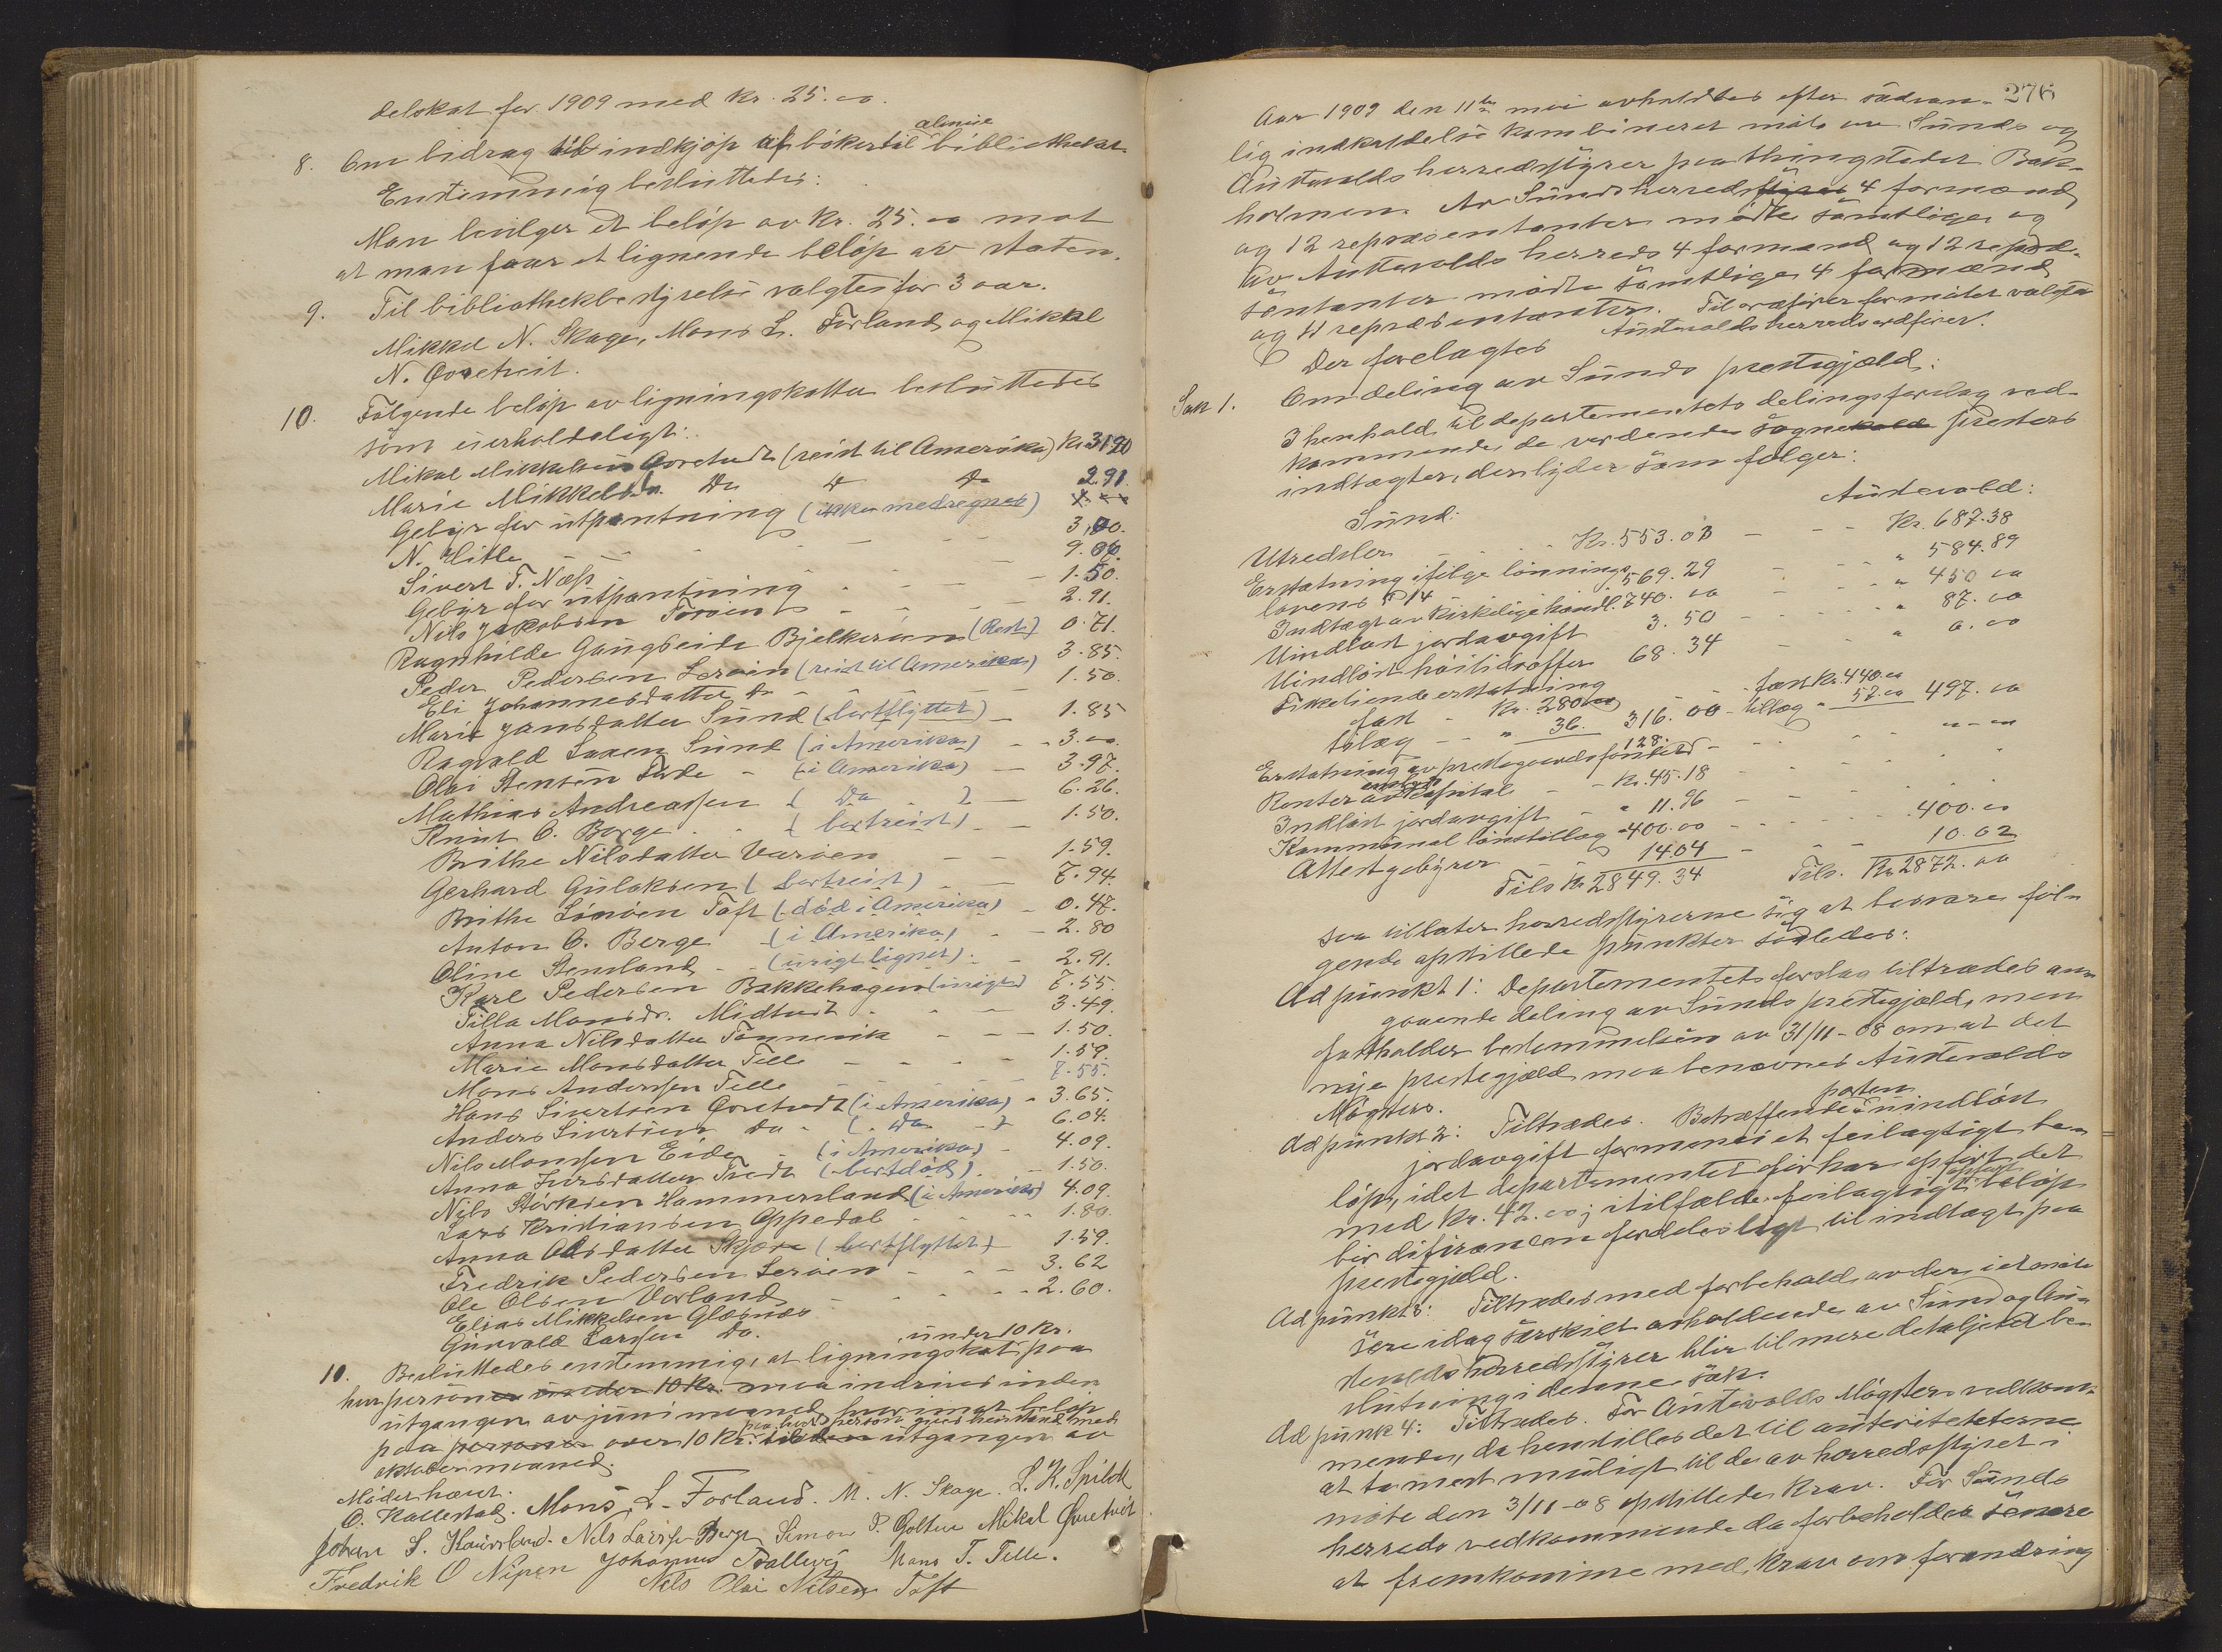 delskat for 1909 med kr. 25.00.
8. Om bidrag til indkjöp af böker til almue bibliotheket.
Enstemmig besluttedes:
Man bevilger et belöp av kr. 25.00 mot
at man faar et lignende belöp av staten.
9. Til bibliothekbestyrelse valgtes for 3 aar.
Mikkel N. Skage, Mons L. Forland og Mikkel
N. Qvretveit.
10. Fölgende belöp av ligningskatten besluttedes
som uerholdeligt:
Mikal Mikkelsen (reist til Amerika) Kr. 31.20
Marie Mikkelsdr. Do Do Do 2.91
Gebyr for utpantning (ikke medregnes)
N. Hitle - - - 3,00.
Sivert T. Næss 9.06.
Gebyr for utpantning - 1.50.
Nils Jakobsen - 2.91.
Ragnhilde Gangseide Bjelkerum (Rest) 0.71.
Peder Pedersen Leröien (reist til Amerika) 3.85.
Eli Johannesdatter do - 1.50.
Marie Jansdatter Sund (bortflyttet) - 1.85
Ragvald Laxen Sund (i Amerika) - 3.00.
Olai Stensen Tede - (i Amerika) - 3.97.
Mathias Andreassen (Do) - 6.26.
Knut O. Berge (bortreist) - 1.50.
Brithe Nilsdatter - 1.59.
Gerhard Gulaksen (bortreist) - 7.94.
Brithe Toft (död i Amerika) - 0.47.
Anton O. Berge (i Amerika) - 2.80
Oline Stensland - (urigt lignet) - 2.91.
Karl Pedersen Bakkehagen (urigt) 7.55.
Tilla Monsdr. Midtveit 3.49.
Anna Nilsdatter - 1.50.
Marie Monsdatter Telle - 1.59.
Mons Anderssen Telle - 7.55.
Hans Sivertsen (i Amerika) - 3.65.
Anders Sivertsen Do - (Do) 6.04.
Nils Monssen Eide (i Amerika) - 4.09.
Anna (bortdöd) - 1.50.
Nils Störksen Hammersland (i Amerika) 4.09.
Lars Kristiansen Oppedal 1.80.
Anna Olsdatter (bortflyttet) 1.59.
Fredrik Pedersen Leröien - 3.62
Ole Olsen Vorland - 2.60.
Elias Mikkelsen Glæsnæs
Gunvald Larssen Do.
10. Besluttedes enstemmig, at ligningskat under 10 Kr. paa
hver person maa indrives inden
utgangen av juni maaned,
paa over 10 Kr. utgangen av
oktober maaned.
Mödet hævet.
O. Kallestad. Mons L. Forland. M. N. Skage. L. K. Spilde
Johan S. Nils Larssen Berge Simon P. Golten Mikal Qvretvit
Fredrik O Nipen Johannes Mons T. Telle.
Nils Olai Nilsen Toft
276
Aar 1909 den 11te mai avholdtes efter sædvan-
lig indkaldelse kombineret möte av Sunds og
Austevolds herredsstyrer paa thingstedet Bak-
holmen. Av Sunds herredsstyres 4 formænd
og 12 repræsentanter mödte samtlige og
av Austevolds herreds 4 formænd og 12 repræ-
sentanter mödte samtlige 4 formænd
og 11 repræsentanter. Til ordförer for mötet valgtes
Austevolds herreds ordförer.
Der forelagtes
Sak 1. Om deling av Sunds prestegjæld:
I henhold til departementets delingsforslag ved-
kommende de vordende sognepresters
indtægter, der lyder som fölger:
Sund: Austevold:
Utredsler Kr. 553.03 - - Kr. 687.38
Erstatning ifölge lönnings-
lovens § 14 569.29 - - " 584.89
Indtægt av kirkelige handl. 740.00 - " 450.00
Uindlöst jordavgift 3.50 - " 87.00
Uindlöst höitidsoffer 68.34 " 0.00
Fisketiende erstatning
fast Kr. 280.00 - fast Kr. 440.00
tillæg - " 36. 316.00 - tillæg " 57.00 497.00
Erstatning av prestegaardsfondet 128.
Renter av kapital - Kr. 45.18
Indlöst jordavgift - " 11.96
Kommunal lönstillæg - 400.00 - 400.00
Attestgebyrer 14.04 - 10.02
Tils Kr. 2849.34 Tils. Kr. 2872.00
saa tillater herredsstyrerne sig at besvare föl-
gende opstillede punkter saaledes:
Ad punkt 1: Departementets forslag tiltrædes an-
gaaende deling av Sunds prestegjæld, men
fastholder bestemmelsen av 31/11-08 om at det
nye prestegjæld maa benævnes Austevolds
Mögster.
Ad punkt 2: Tiltrædes. Betræffende posten uindlöst
jordavgift formenes et feilagtigt be-
löp, idet departementet för har opfört det
med Kr. 42.00; i tilfælde feilagtigt opfört belöp
bör differencen fordeles ligt til indtægt paa
prestegjæld.
Ad punkt 3: Tiltrædes med forbehold av der i et
senere idag særskilt avholdende av Sund og Au-
stevolds herredsstyrer blir til mere detaljeret be-
slutning i denne sak.
Ad punkt 4: Tiltrædes. For Austevolds Mögster vedkom-
mende, da henstilles det til autoriteterne
at ta mest muligt til de av herredsstyret i
möte den 3/11-08 opstillede krav. For Sunds
herreds vedkommende da forbeholdes senere
at fremkomme med krav om forandring